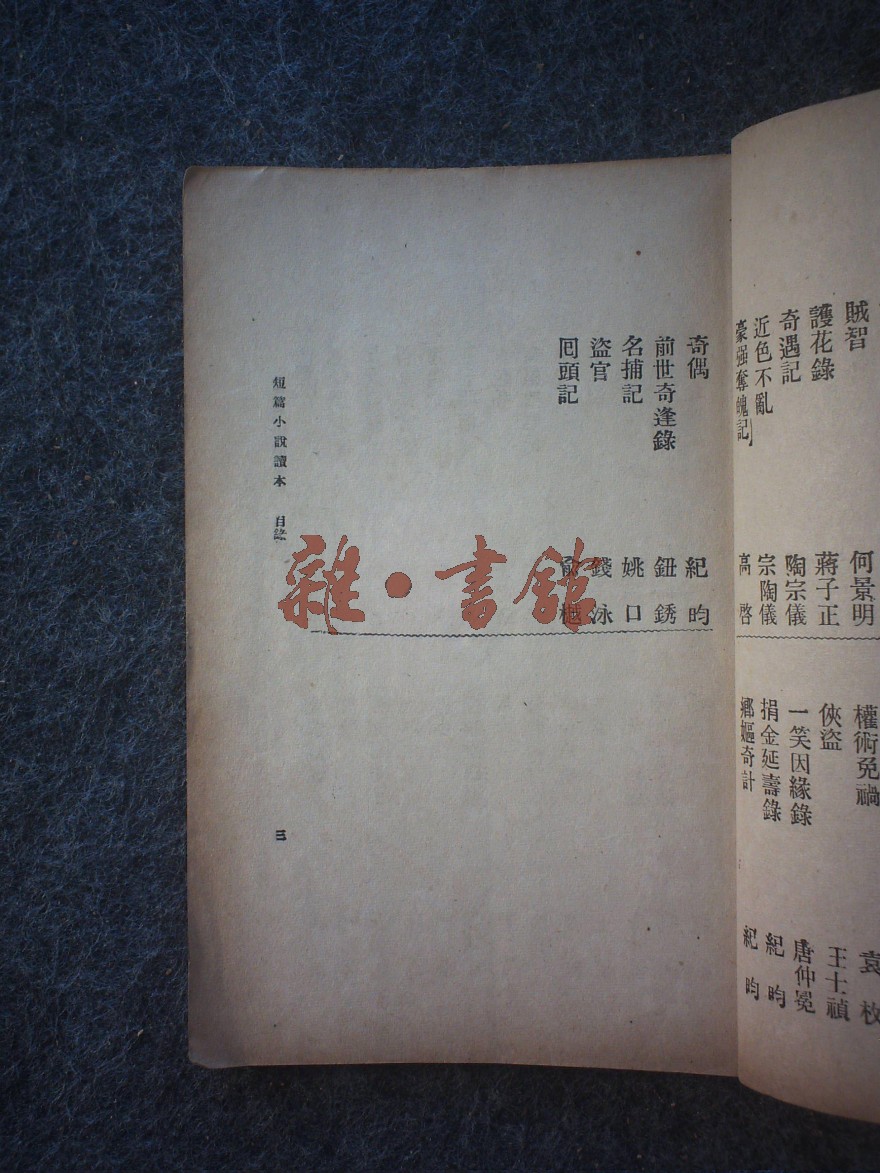 賊智　何景明
護花錄　蔣子正
奇遇記　陶宗儀
近色不亂　宗陶儀
豪强奪醜記　高啓
權術免禍　袁枚
俠盜　王士禎
一笑因緣錄　唐仲冕
捐金延壽錄　紀昀
鄉嫗奇計　紀昀
奇偶　紀昀
前世奇逢錄　鈕銹
名捕記　姚口
盜官　錢泳
囘頭記　俞樾
短篇小說讀本　目錄
三
雜·書館